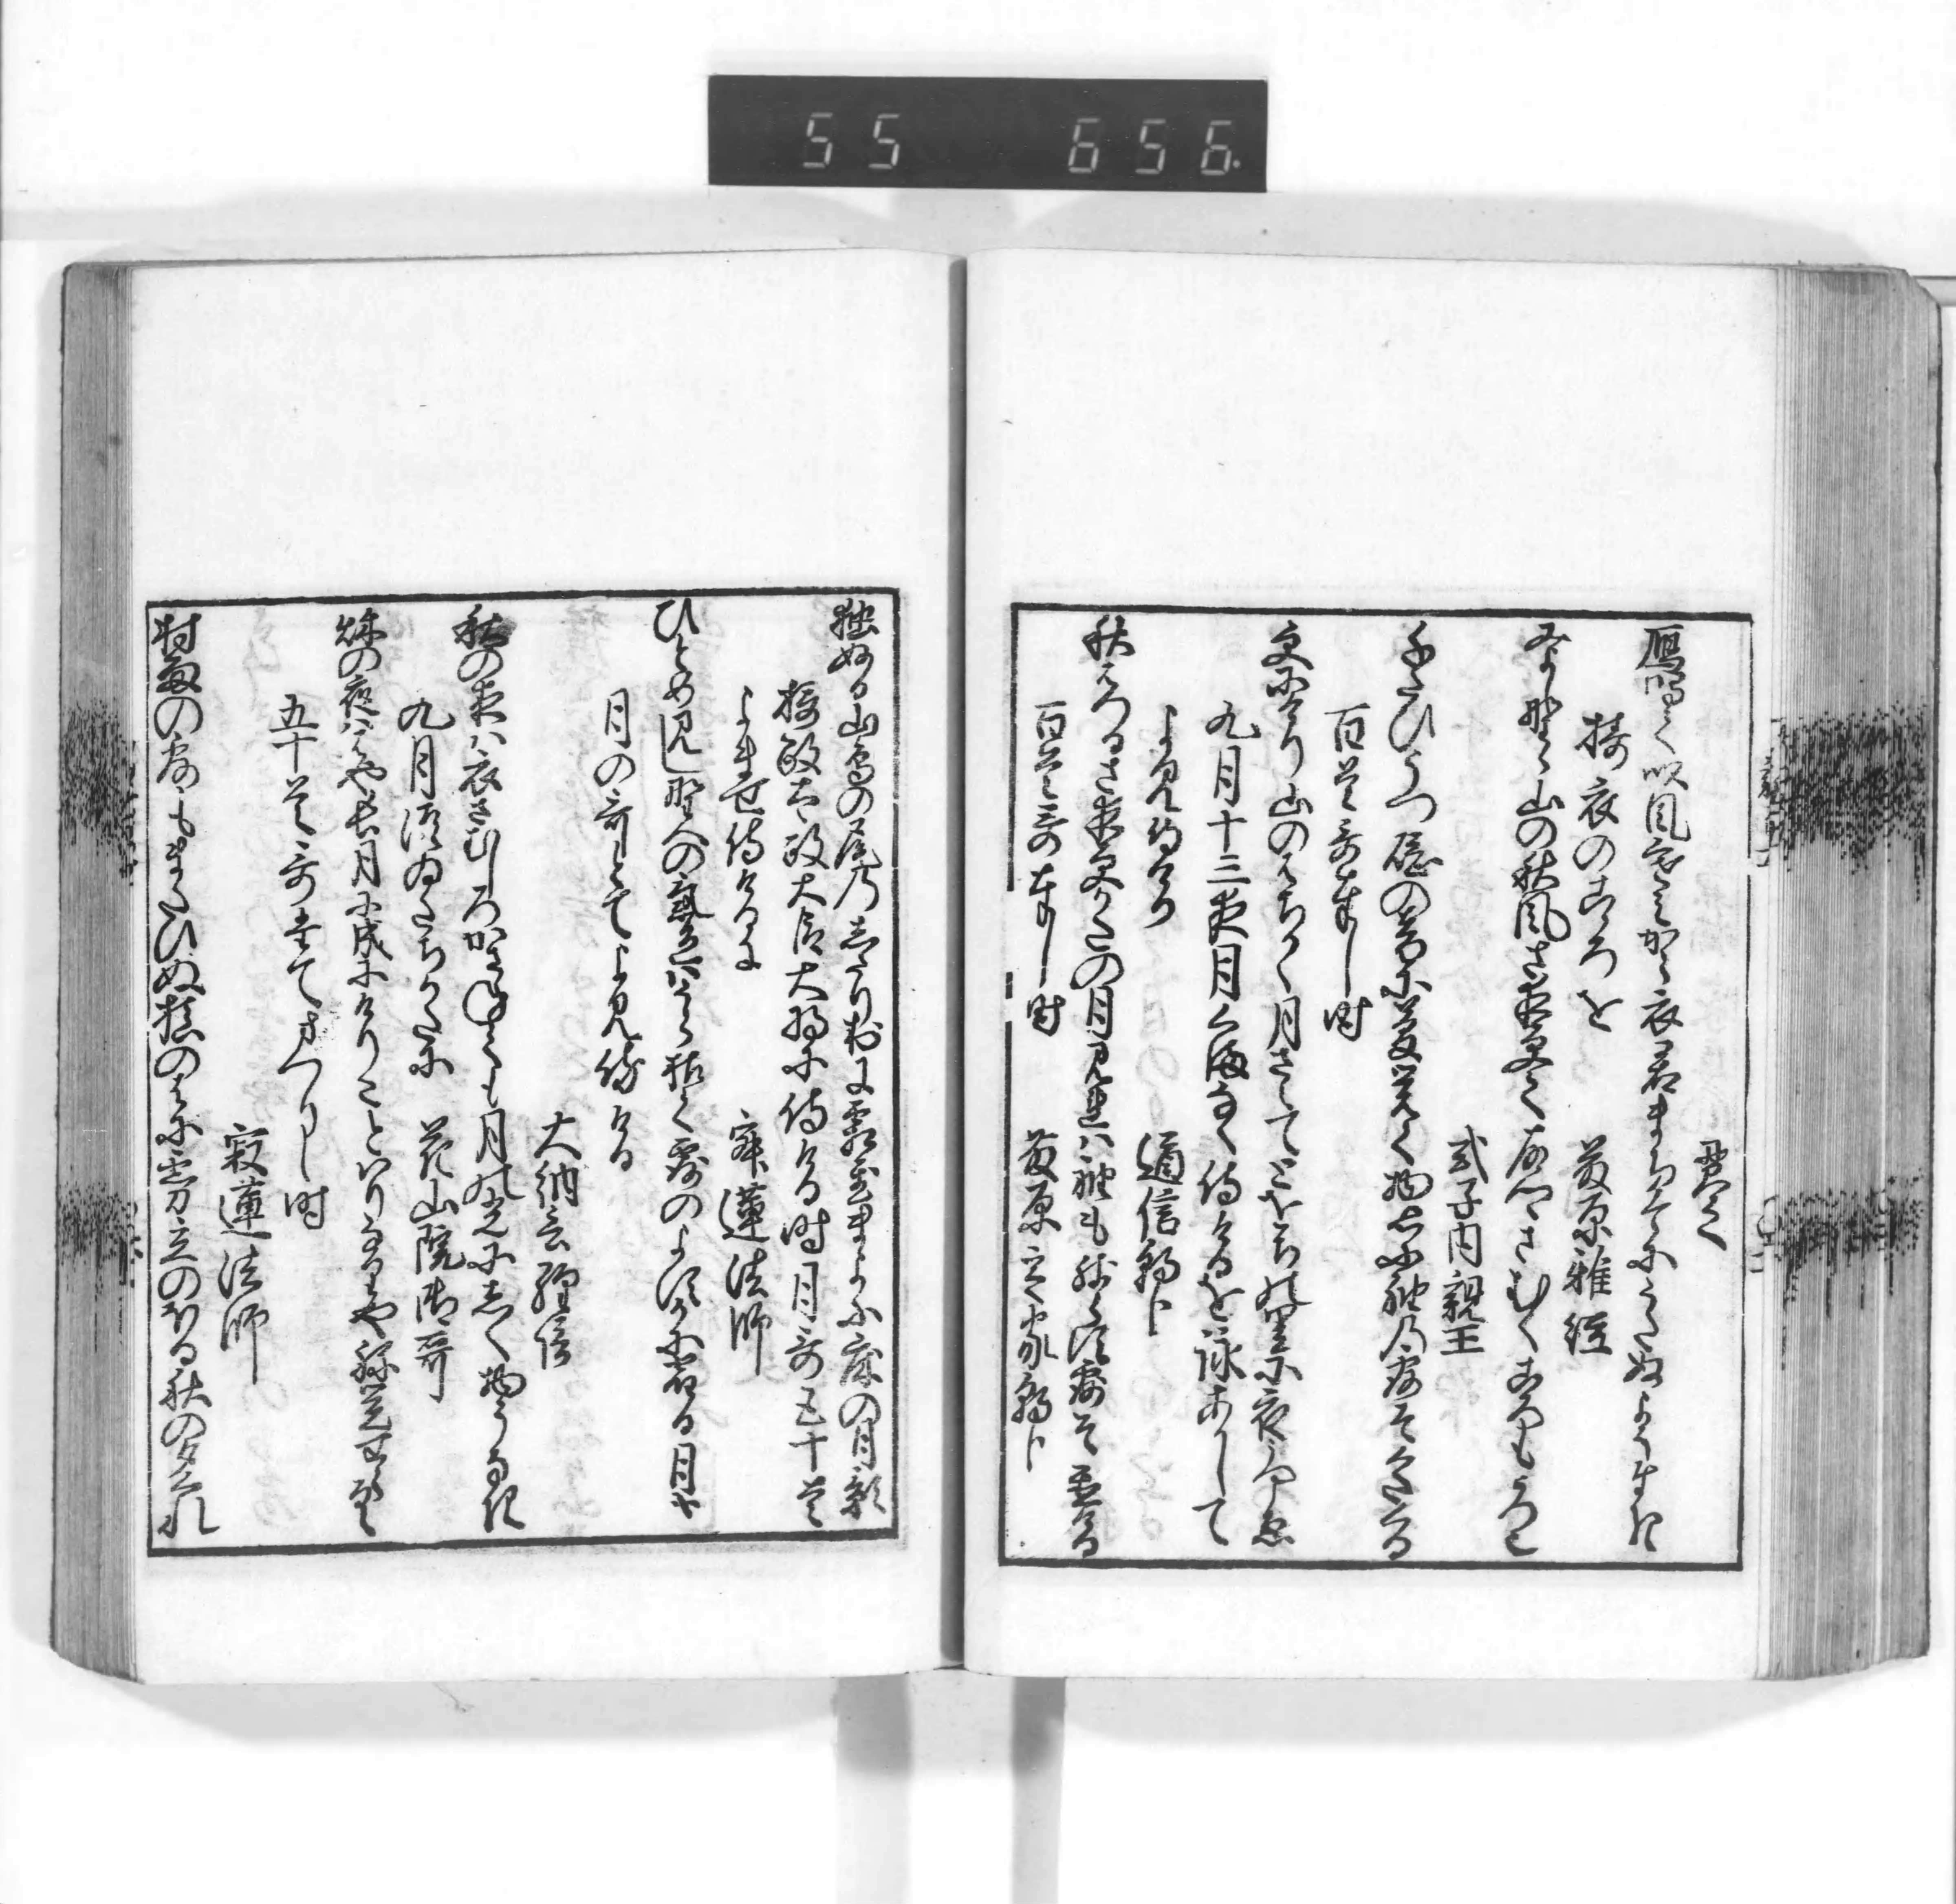 55 656.
貫之
雁鳴て吹風さむみから衣君まちかてにうたぬよそなき
擣衣のこゝろを 藤原雅経
みよし野の山の秋風さ夜更てふる里さむくころもうつ也
式子内親王
千たひうつ砧の音に夢覚て物おもふ袖の露そくたくる
百首哥奉し時
更にけり山のはちかく月さえてとをちの里に衣うつこゑ
九月十三夜月くまなく侍けるを詠あかして
よみ侍ける 道信朝臣
秋はつるさ夜更かたの月見れは袖も残らす露そ置ける
百首哥奉し時 藤原定家朝臣
独ぬる山鳥の尾のしたり尾に霜置まよふ床の月影
摂政太政大臣大将に侍ける時月哥五十首
よませ侍けるに 寂蓮法師
ひとめ見し野辺の気色はうら枯て露のよすかにやとる月哉
月の哥とてよみ侍ける
大納言経信
秋の夜は衣さむしろかさねても月の光にしく物そなき
九月ついたちかたに 花山院御哥
秋の夜ははや長月に成にけりことはりなりや寐覚せらるゝ
五十首哥たてまつりし時
寂蓮法師
村雨の露もまたひぬ槙のはに霧立のほる秋の夕くれ